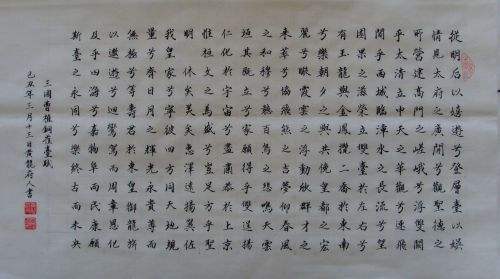 從明后以嬉遊兮登層臺以娛
情見太府之廣開兮觀聖德之
所營建高門之嵯峨兮浮雙闕
乎太清立中天之華觀兮連飛
閣乎西城臨漳水之長流兮望
園果之滋榮立雙臺於左右兮
有玉龍與金鳳攬二喬於東南
兮樂朝夕之與共俯皇都之宏
麗兮瞰雲霞之浮動欣群才之
來萃兮協飛熊之吉夢仰春風
之和穆兮聽百鳥之悲鳴天雲
垣其既立兮家願得乎獲逞揚
仁化於宇宙兮盡肅恭於上京
惟桓文之為盛兮豈足方乎聖
明休矣美矣惠澤遠揚翼佐
我皇家兮寧彼四方同天地規
量兮齊日月之輝光永貴尊而
無極兮等年壽於東皇御龍旂
以遨遊兮迴鸞駕而周章恩化
及乎四海兮嘉物阜而民康願
斯臺之永固兮樂終古而未央
三國曹植銅雀臺賦
己丑年三月十三日黃龍府人書